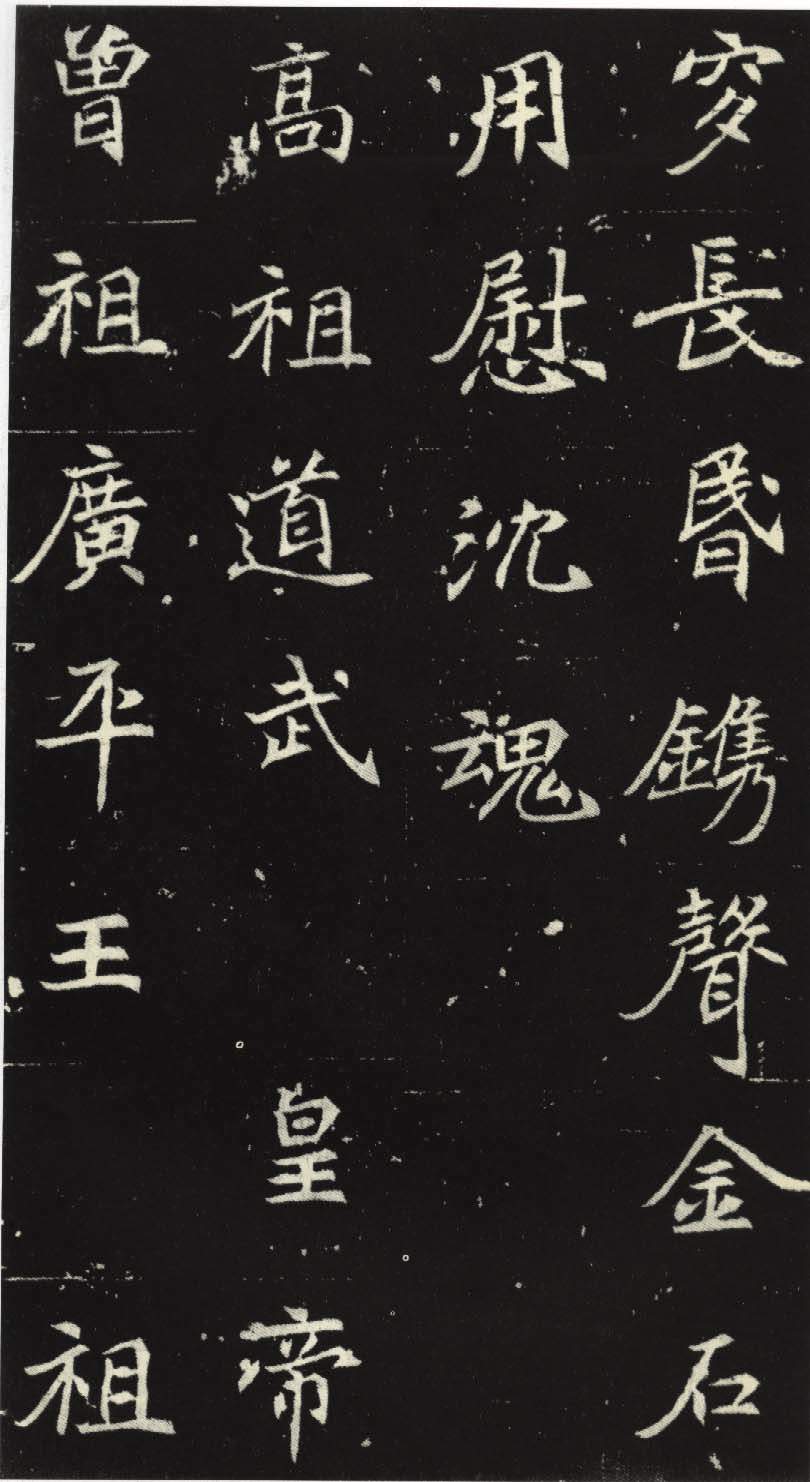 穸長昬鐫聲金石
用慰沈魂
高祖道武皇帝
曾祖廣平王祖